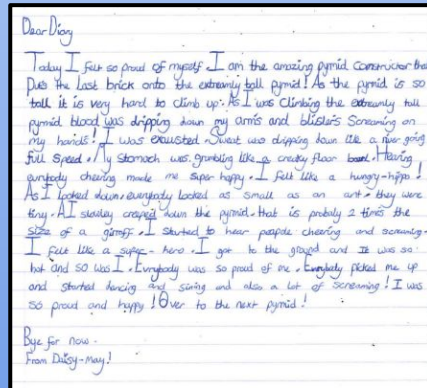 Dear Diary
Today I felt so proud of myself. I am the amazing pymid constructor that
puts the last brick onto the extreamly tall pymid! As the pymid is so
tall it is very hard to climb up. As I was climbing the extreamly tall
pymid blood was dripping down my arms and blisters screaming on
my hands! I was exausted. Sweat was dripping down like a river going
full speed. My stomach was grumbling like a creaky floor. Hearing
evrybody cheering made me super happy. I felt like a hungry-hippo!
As I looked down, evrybody looked as small as an ant. they were
tiny. I slowley creeped down the pymid. that is probaly 2 times the
size of a giraff. I started to hear people cheering and screaming.
I felt like a super-hero. I got to the ground and It was so
hot and so was I. Evrybody was so proud of me. Evrybody picked me up
and started dancing and sining and also a lot of screaming! I was
so proud and happy! Over to the next pymid!
Bye for now.
From Daisy-may!